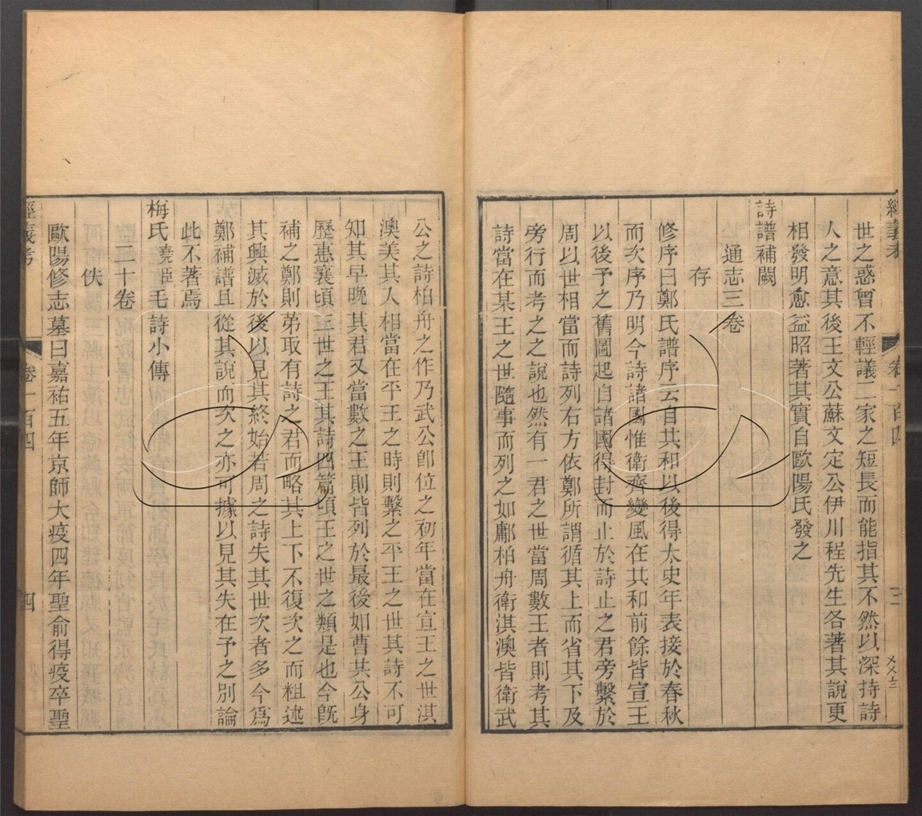 經義考
卷一百四
三
世之惑曾不輕議二家之短長而能指其不然以深持詩
人之意其後王文公蘇文定公伊川程先生各著其說更
相發明愈益昭著其實自歐陽氏發之
詩譜補闕
通志三卷
存
修序曰鄭氏譜序云自共和以後得太史年表接於春秋
而次序乃明今詩諸國惟衞齊變風在共和前餘皆宣王
以後予之舊圖起自諸國得封而止於詩止之君旁繫於
周以世相當而詩列右方依鄭所謂循其上而省其下及
旁行而考之之說也然有一君之世當周數王者則考其
詩當在某王之世隨事而列之如鄘柏舟衞淇澳皆衞武
公之詩柏舟之作乃武公卽位之初年當在宣王之世淇
澳美其人相當在平王之時則繫之平王之世其詩不可
知其早晚其君又當數之王則皆列於最後如曹共公身
歷惠襄頃三世之王其詩四篇頃王之世之類是也今旣
補之鄭則弟取有詩之君而略其上下不復次之而粗述
其興滅於後以見其終始若周之詩失其世次者多今爲
鄭補譜且從其說而次之亦可據以見其失在予之別論
此不著焉
梅氏堯臣毛詩小傳
二十卷
佚
歐陽修志墓曰嘉祐五年京師大疫四年聖俞得疫卒聖
經義考
卷一百四
四